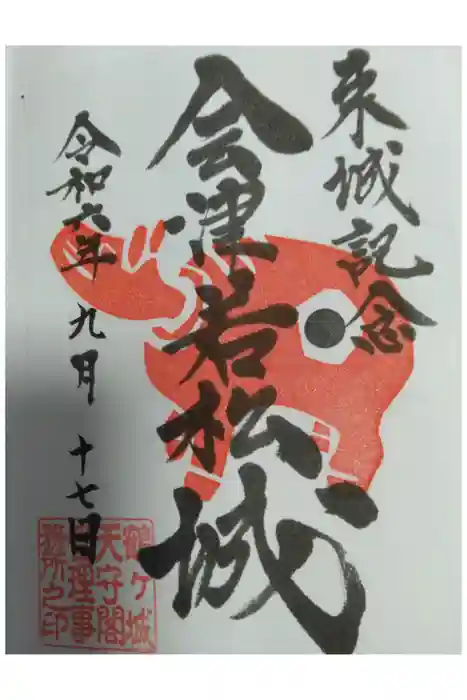 来城記念
会津若松城
令和六年九月十七日
鶴ヶ城
天守閣
管理事
務所之印